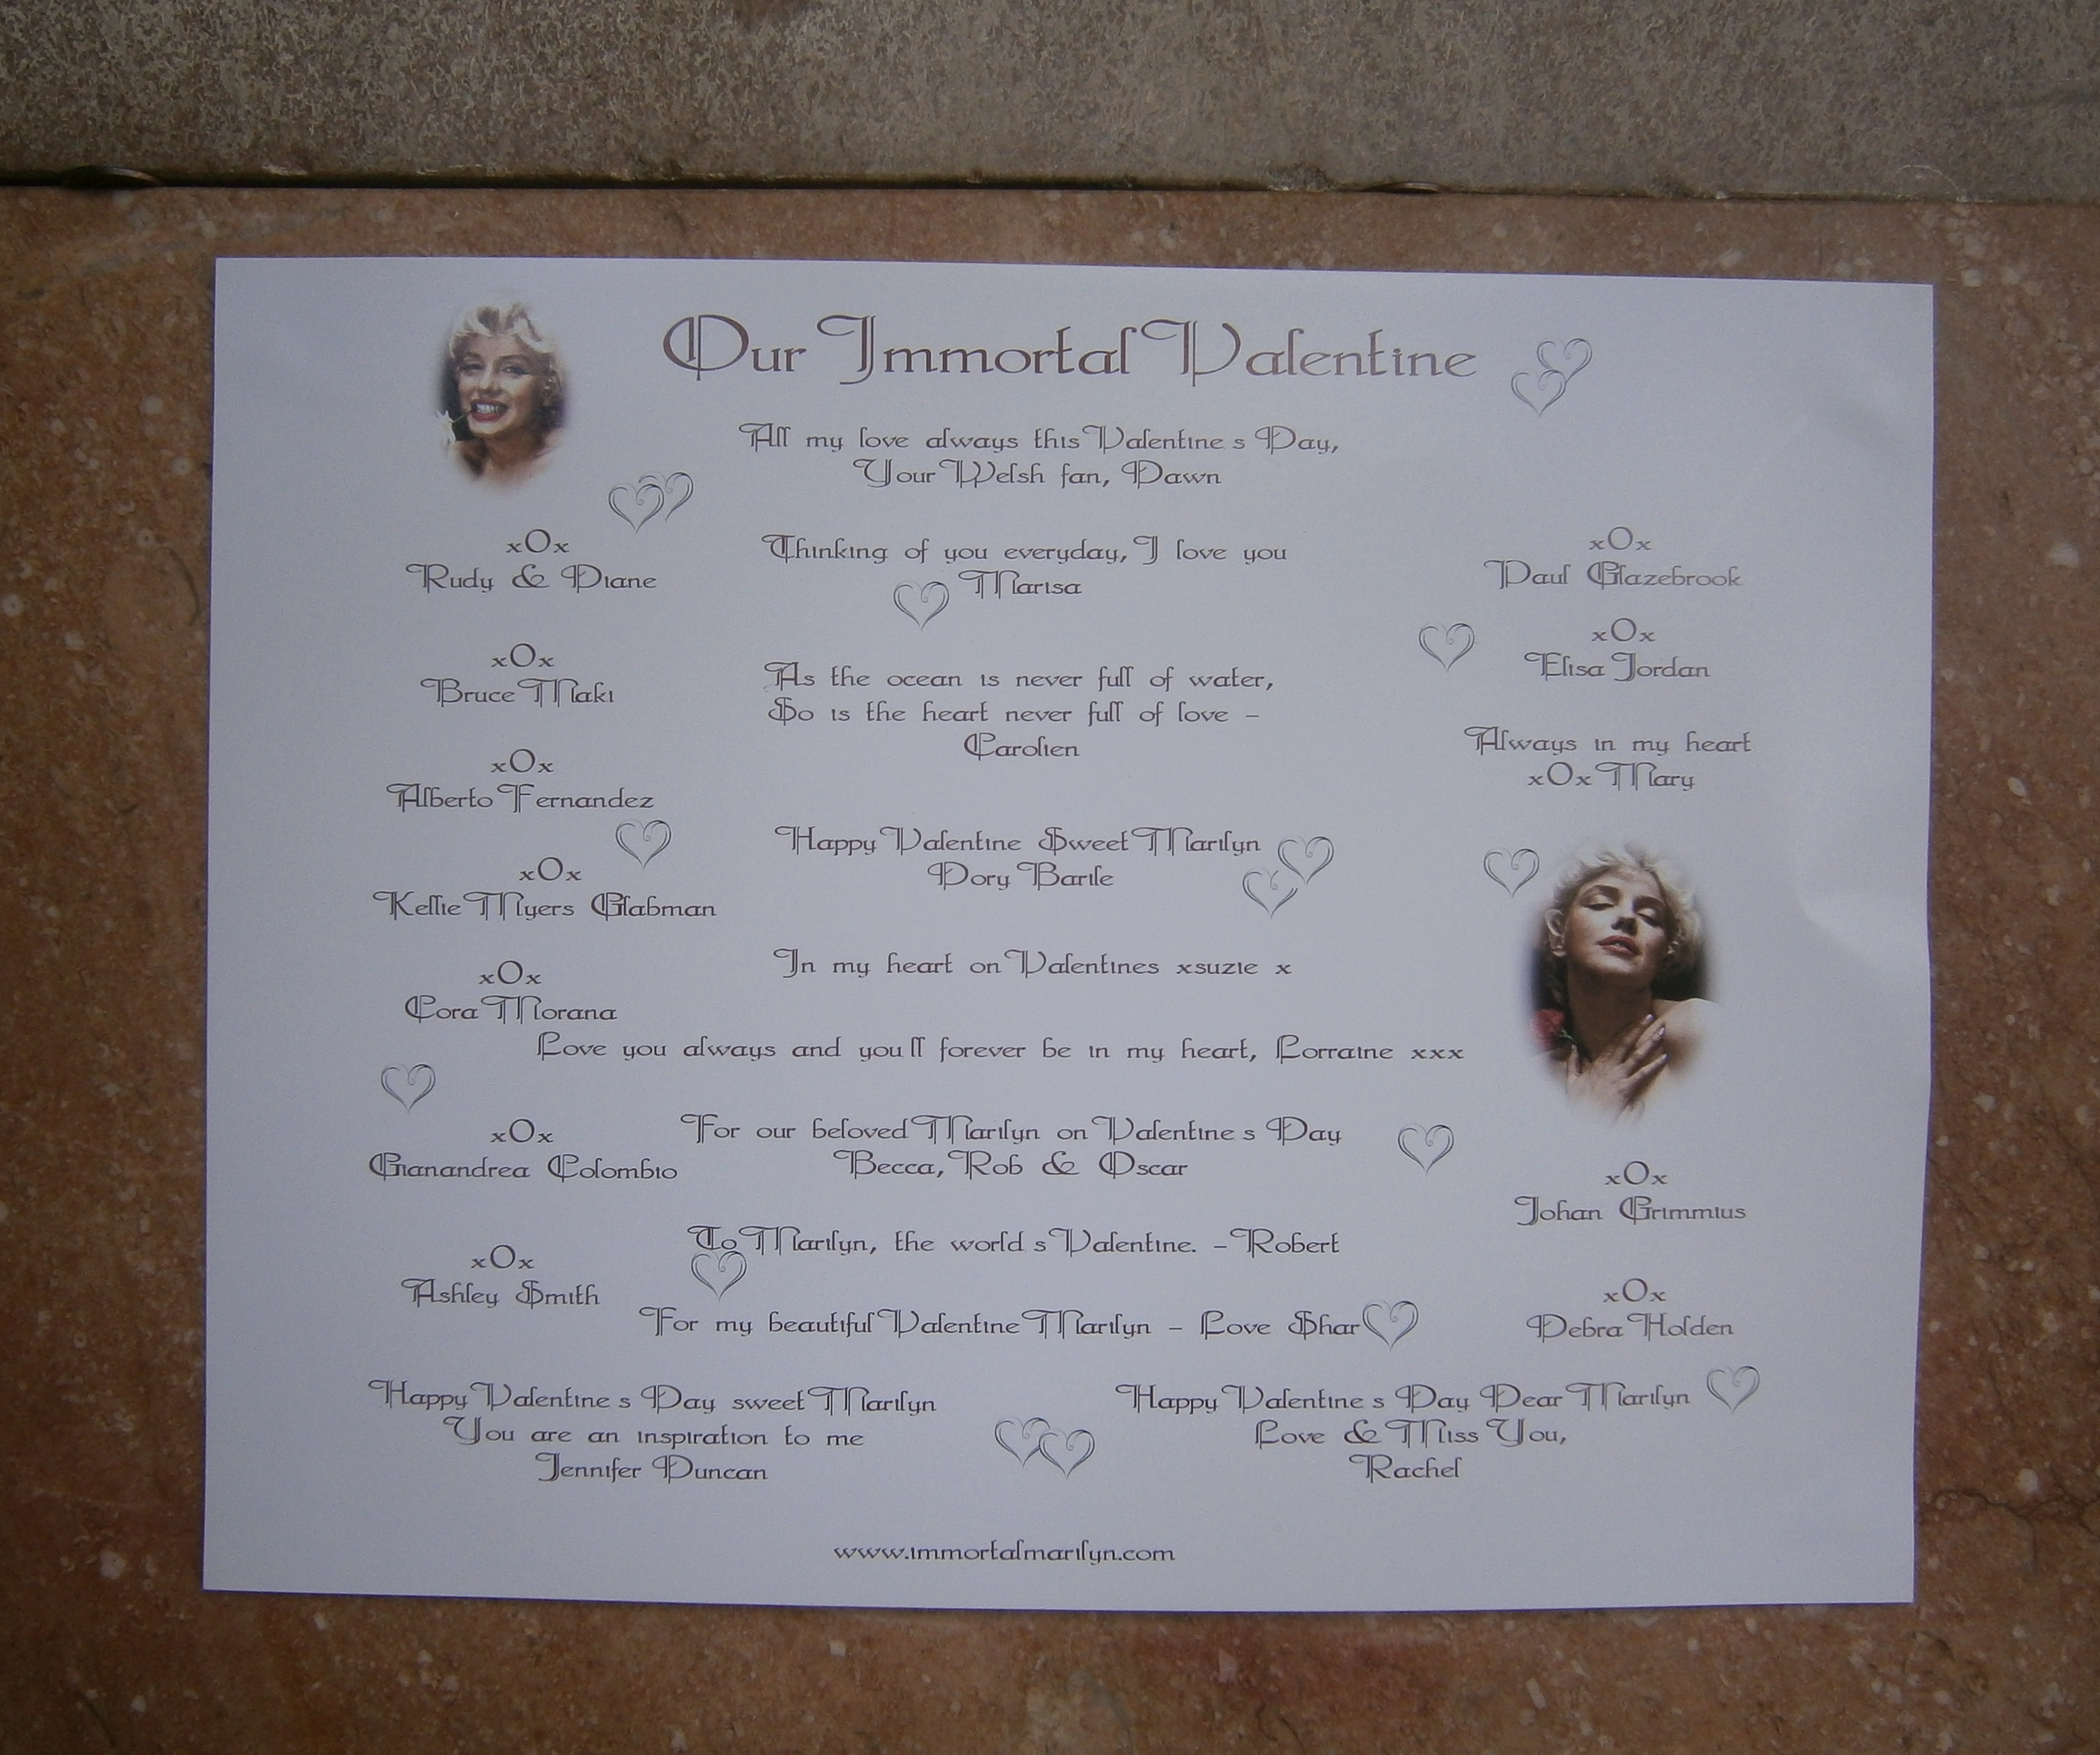 Our Immortal Valentine
All my love always this Valentine s Day,
Your Welsh fan, Dawn
xOx
Rudy & Diane
Thinking of you everyday, I love you
Marisa
xOx
Paul Glazebrook
xOx
Elisa Jordan
xOx
Bruce Maki
As the ocean is never full of water,
So is the heart never full of love -
Carolien
Always in my heart
xOx Mary
xOx
Alberto Fernandez
Happy Valentine Sweet Marilyn
Dory Barile
xOx
Kellie Myers Glabman
In my heart on Valentines xsuzie x
xOx
Cora Morana
Love you always and you ll forever be in my heart, Lorraine xxx
xOx
Gianandrea Colombio
For our beloved Marilyn on Valentine s Day
Becca, Rob & Oscar
xOx
Johan Grimmius
To Marilyn, the world s Valentine. -Robert
xOx
Ashley Smith
For my beautiful Valentine Marilyn - Love Shar
xOx
Debra Holden
Happy Valentine s Day sweet Marilyn
You are an inspiration to me
Jennifer Duncan
Happy Valentine s Day Dear Marilyn
Love & Miss You,
Rachel
www.immortalmarilyn.com